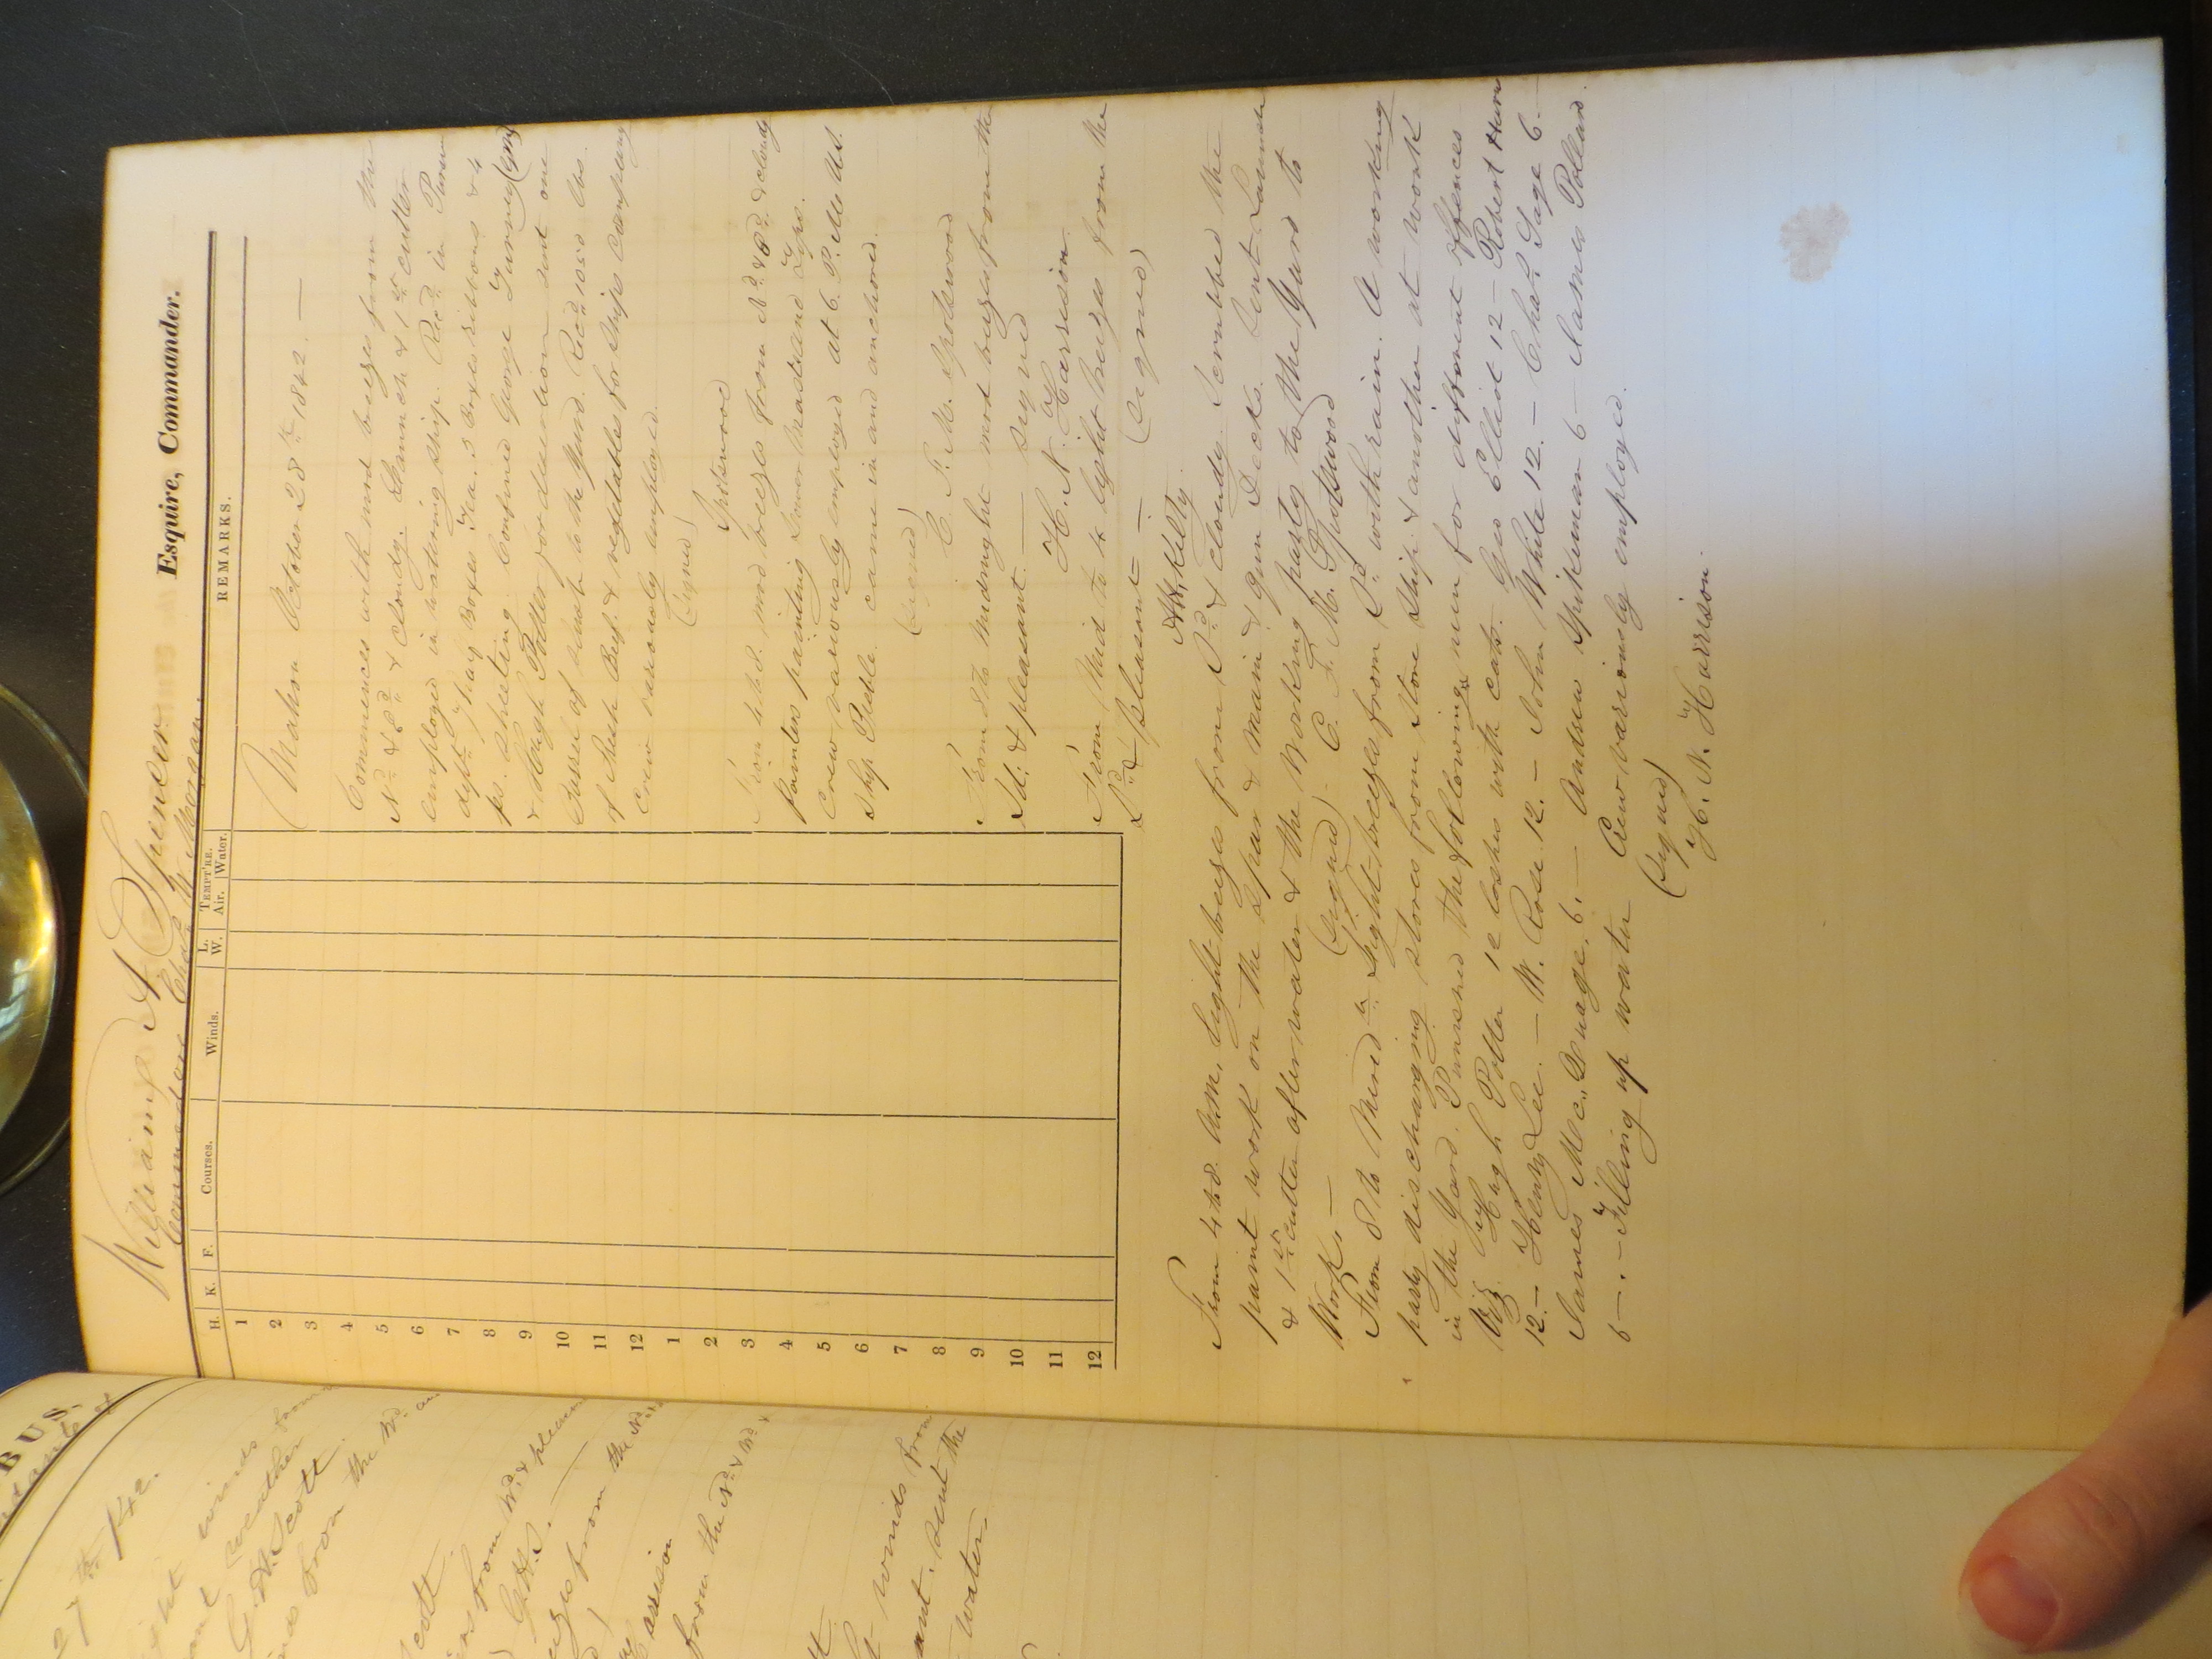 BUS.
27th 1842.
light winds from
weather
G. W. Scott
from the Wd. an
Scott
from Wd. & pleasan
G. W. S.
from the Nd.
Harrison
from the Nd. & Wd. &
winds from
sent the
water.
William A Spencer Esquire, Commander.
Commodore Chas. W. Morgan.
H. K. F. Courses. Winds. L. W. TEMPT'RE. Air. Water. REMARKS.
1
2
3
4
5
6
7
8
9
10
11
12
1
2
3
4
5
6
7
8
9
10
11
12
Mahon October 28th 1842. —
Commences with mod breezes from the
Nd. & Ed. & cloudy. Launch & 1st cutter
employed in watering ship. Recd. in Purser
dept. 7 half Boxes Tea. 3 Boxes ribbons & 4
ps. sheeting. Confined George Turney
& Hugh Potter for desertion sent one
Barrel of to the Yard. Recd 1050 lbs.
of Fresh Beef & vegetables for ships company
Crew variously employed.
(Signed)
Spotswood
From 4 to 8. mod breezes from Nd. & Ed. & cloudy
painters painting Lower Masts and Tops.
Crew variously employed at 6 P. M. the U.S.
Ship Preble came in and anchored.
(Signed)
C. F. M. Spotswood
From 8 to Midnight mod breezes from the
Ed. & pleasant. — Signed
H. N. Harrison
From Mid to 4 light breezes from the
Ed & pleasant — (Signed)
A.H. Kilty.
From 4 to 8. A.M. light breezes from Ed. & cloudy. Scrubbed the
paint work on the Spar & Main & Gun Decks. Sent Launch
& 1st cutter after water & the Working party to the Yard to
Work. — (Signed) C. F. M. Spotswood
From 8 to Merid n. Light breezes from Ed. with rain. A working
party discharging stores from Store Ship & another at work
in the Yard. Punished the following men for different offences
Viz. Hugh Potter 12 lashes with cats. Geo Elliot 12 — Robert
12. — Henry Lee. — W. Rose 12. — John White 12. — Chas. Sage 6.
James McDonage. 6. — Andrew Spikeman 6 — James Pollard.
6 —. — Filling up water Crew variously employed.
(Signed)
H. N. Harrison.